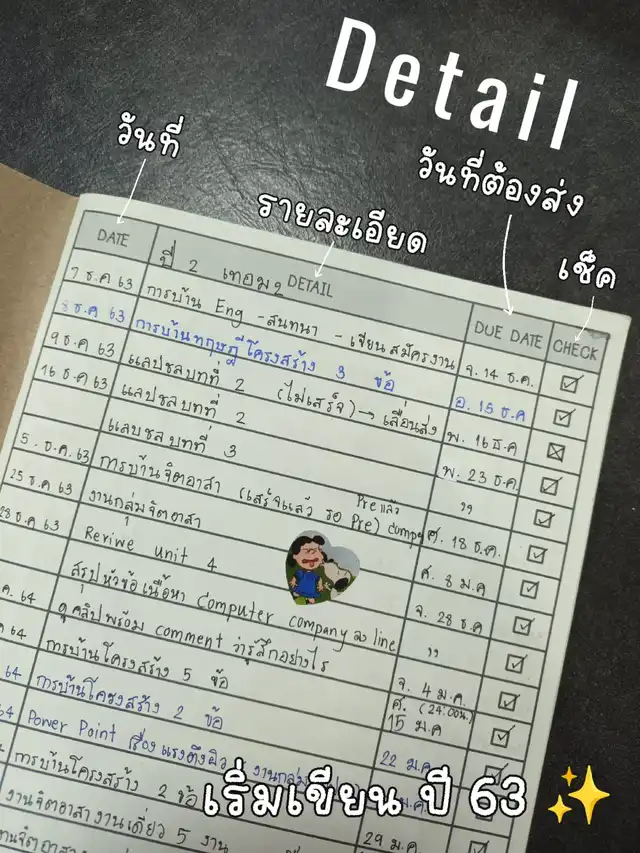 Detail
วันที่
วันที่ต้องส่ง
รายละเอียด
เช็ค
DATE
DETAIL
DUE DATE
CHECK
ปี 2 เทอม 2
7 ธ.ค 63 การบ้าน Eng - สนทนา - เขียนสมัครงาน จ. 14 ธ.ค.
8 ธ.ค 63 การบ้านทฤษฎีโครงสร้าง 3 ข้อ อ. 15 ธ.ค
9 ธ.ค 63 แลปชลบทที่ 2 (ไม่เสร็จ) → เลื่อนส่ง พ. 16 ธ.ค
16 ธ.ค 63 แลปชลบทที่ 2 พ. 23 ธ.ค.
แลปชลบทที่ 3 ,,
5 . ธ.ค. 63 การบ้านจิตอาสา (เสร็จแล้ว รอ Pre) Pre แล้ว ศ. 18 ธ.ค.
25 ธ.ค 63 งานกลุ่มจิตอาสา ศ. 8 ม.ค
28 ธ.ค 63 Reriwe unit 4 จ. 28 ธ.ค
สรุปหัวข้อเนื้อหา Computer company ลง line ,,
ค. 64 ดูคลิปพร้อม comment ว่ารู้สึกอย่างไร จ. 4 ม.ค.
64 การบ้านโครงสร้าง 5 ข้อ ศ. (24:00น.) 15 ม.ค
64 การบ้านโครงสร้าง 2 ข้อ 22 ม.ค
64 Power Point เรื่อง แรงตึงผิว งานกลุ่ม
การบ้านโครงสร้าง 2 ข้อ
งานจิตอาสางานเดี่ยว 5 งาน 29 ม.ค
เริ่มเขียน ปี 63 ✨